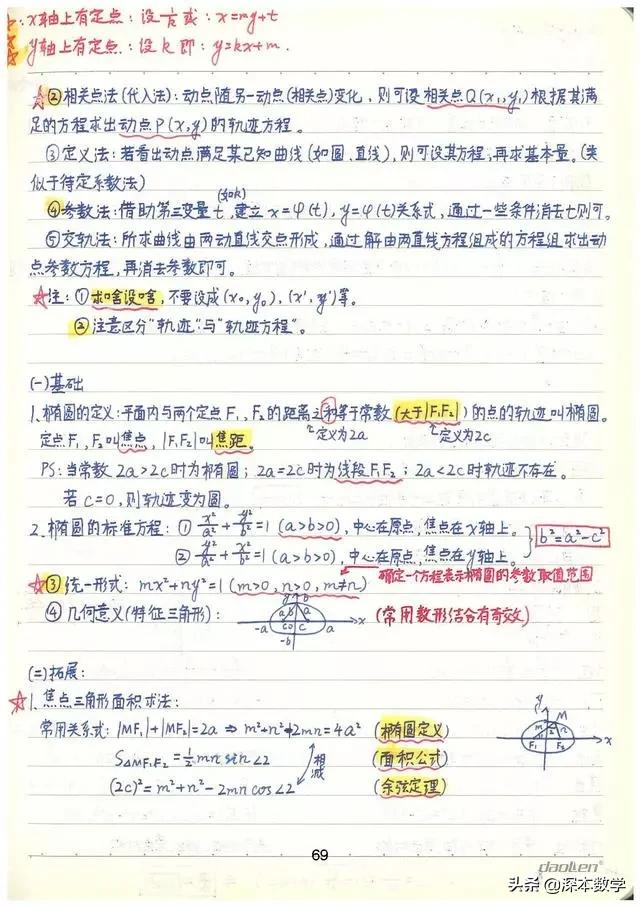 x轴上有定点：设1/k或：x=my+t
y轴上有定点：设k即：y=kx+m.
☆②相关点法(代入法)：动点随另一动点(相关点)变化，则可设相关点Q(x₁,y₁)根据其满
足的方程求出动点P(x,y)的轨迹方程。
③定义法：若看出动点满足某已知曲线(如圆、直线)，则可设其方程，再求基本量。(类
似于待定系数法)
(如k)
④参数法：借助第三变量t，建立x=φ(t)，y=φ(t)关系式，通过一些条件消去t则可。
⑤交轨法：所求曲线由两动直线交点形成，通过解由两直线方程组成的方程组求出动
点参数方程，再消去参数即可。
☆注：①求啥设啥，不要设成(x₀,y₀)，(x',y')等。
②注意区分“轨迹”与“轨迹方程”。
(一)基础
1、椭圆的定义：平面内与两个定点F₁、F₂的距离之和等于常数(大于|F₁F₂|)的点的轨迹叫椭圆。
定义为2a 定义为2c
定点F₁、F₂叫焦点，|F₁F₂|叫焦距。
PS：当常数2a>2c时为椭圆；2a=2c时为线段F₁F₂；2a<2c时轨迹不存在。
若c=0，则轨迹变为圆。
2、椭圆的标准方程：①x²/a²+y²/b²=1(a>b>0)，中心在原点，焦点在x轴上。
②y²/a²+x²/b²=1(a>b>0)，中心在原点，焦点在y轴上。
b²=a²-c²
☆③统一形式：mx²+ny²=1(m>0,n>0,m≠n)
确定一个方程表示椭圆的参数取值范围
④几何意义(特征三角形)：
y b
a b a
-a c o c a x
-b
(常用数形结合有奇效)
(二)拓展：
☆1、焦点三角形面积求法：
常用关系式：|MF₁|+|MF₂|=2a⇒m²+n²+2mn=4a² (椭圆定义)
S△MF₁F₂=½mn sin∠2 (面积公式)
相减
(2c)²=m²+n²-2mn cos∠2 (余弦定理)
y
M
m 2 n
F₁ F₂ x
69
daolien
头条@深本数学